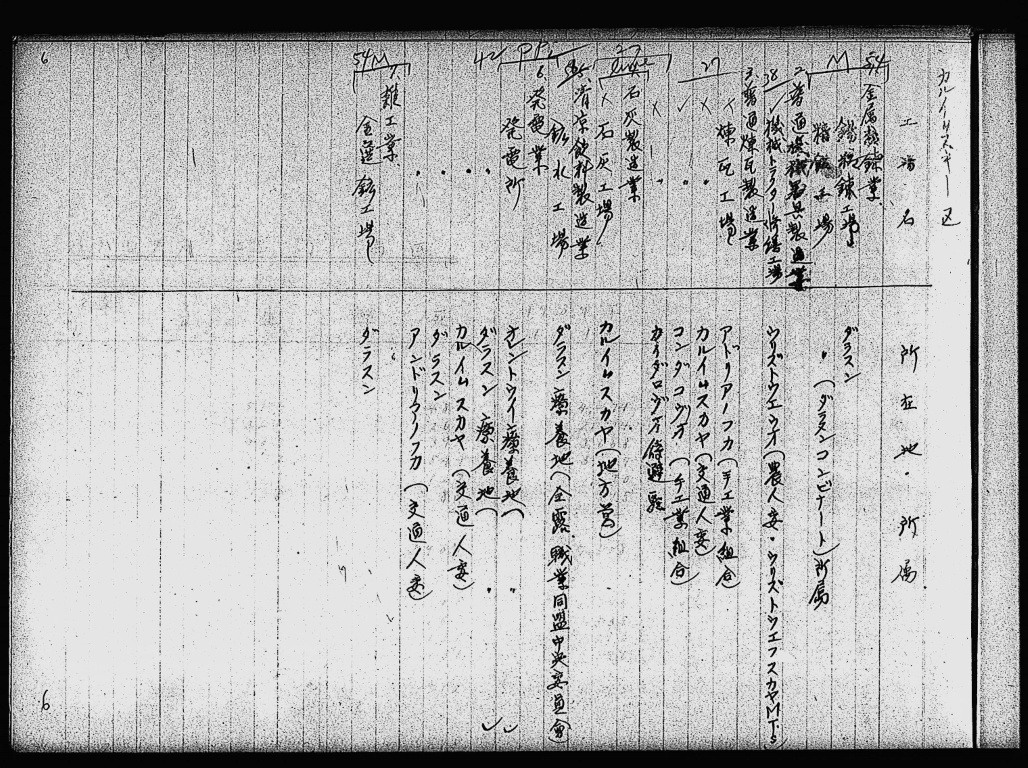 カルイムスキー区
工場名
所在地・所属
54
M
金属製錬業
錫製錬工場
ダラスン
精錬工場
〃(ダラスンコンビナート)所属
2.普通機械器具製造業
38
✓機械トラクター修繕工場
ウリズトウエウオ(農人委・ウリズトウエフスカヤMTS)
3.普通煉瓦製造業
27
×煉瓦工場
アドリアノフカ(手工業組合)
× 〃
カルイムスカヤ(交通人委)
✓ 〃
コンダコウオ(手工業組合)
× 〃
カイダロヴオ待避駅
石灰製造業
×石灰工場
カルイムスカヤ(地方営)
5.清涼飲料製造業
鉱水工場
ダラスン療養地(全露職業同盟中央委員会)
6.発電業
42
発電所
オレントウイ療養地(〃)
〃
ダラスン療養地(〃)
〃
カルイムスカヤ(交通人委)
〃
ダラスン
〃
アンドリアノフカ(交通人委)
54M
7.雑工業
金選鉱工場
ダラスン
6
6